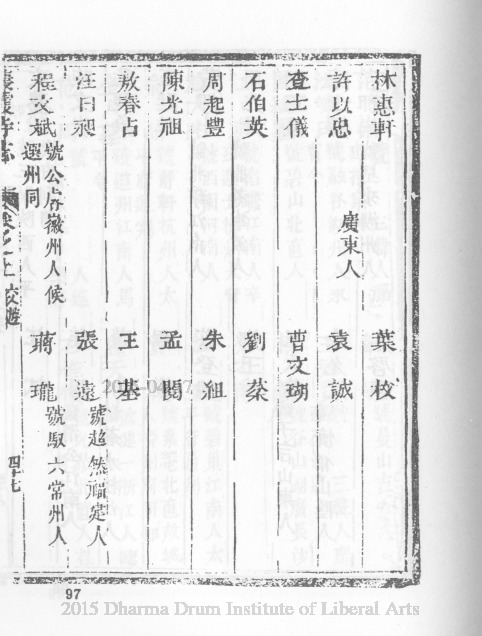 林惠軒　葉枝
許以忠　廣東人　袁誠
查士儀　曹文瑚
石伯英　劉棻
周起豐　朱組
陳光祖　孟閲
敖春占　王基
汪日昶　張遠號超然福定人
程文斌號公居徽州人候選州同　蔣瓏號馭六常州人
寺志
卷之上
交遊
四十七
97
2015 Dharma Drum Institute of Liberal Arts